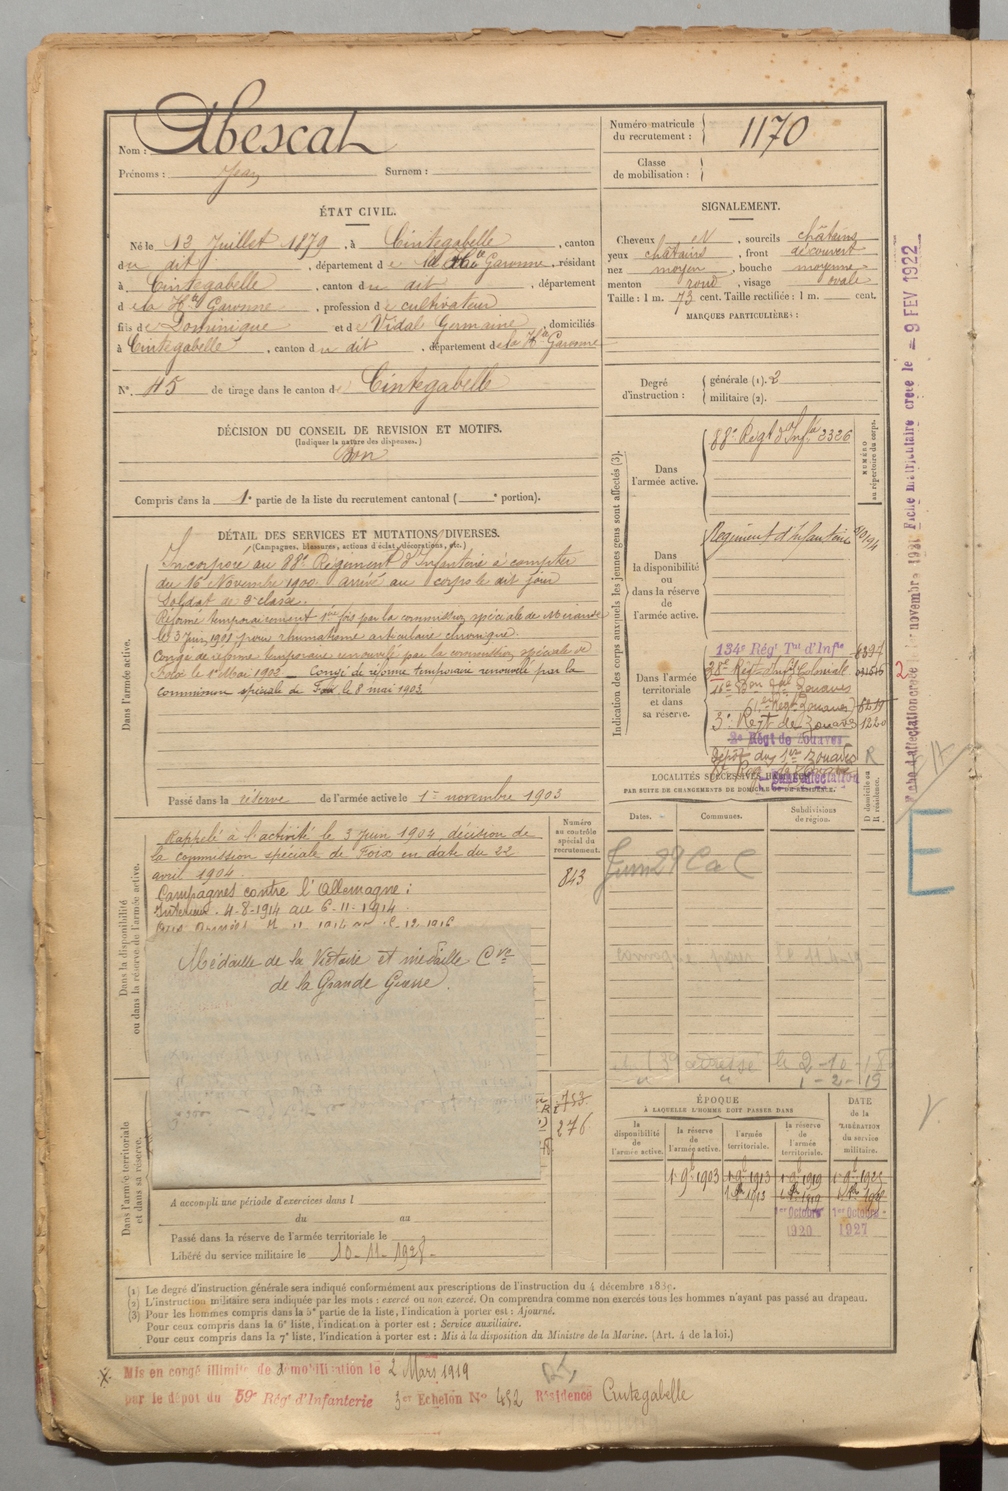 Nom : Abescat
Prénoms : Jean Surnom :
Numéro matricule du recrutement : 1170
Classe de mobilisation :
ÉTAT CIVIL.
Né le 13 Juillet 1879, à Cintegabelle, canton
du dit, département de la Hte Garonne, résidant
à Cintegabelle, canton du dit, département
de la Hte Garonne, profession de cultivateur
fils de Dominique et de Vidal Germaine, domiciliés
à Cintegabelle, canton du dit, département de la Hte Garonne
N°. 45 de tirage dans le canton de Cintegabelle
DÉCISION DU CONSEIL DE REVISION ET MOTIFS.
(Indiquer la nature des dispenses.)
Bon
Compris dans la 1e partie de la liste du recrutement cantonal ( e portion).
SIGNALEMENT.
Cheveux N, sourcils châtains
yeux châtains, front découvert
nez moyen, bouche moyenne
menton rond, visage ovale
Taille : 1 m. 73 cent. Taille rectifiée : 1 m. cent.
MARQUES PARTICULIÈRES :
Degré d'instruction : générale (1). 2
militaire (2).
DÉTAIL DES SERVICES ET MUTATIONS DIVERSES.
(Campagnes, blessures, actions d'éclat, décorations, etc.)
Dans l'armée active.
Incorporé au 88e Régiment d'Infanterie à compter
du 16 Novembre 1900. arrivé au corps le dit jour
Soldat de 2e classe.
Réformé temporairement 1ère fois par la commission spéciale de Mirande
le 3 Juin 1901 pour rhumatisme articulaire chronique.
Congé de réforme temporaire renouvelé par la commission spéciale de
Foix le 1er Mai 1902 _ Congé de réforme temporaire renouvelé par la
commission spéciale de Foix le 8 mai 1903
Passé dans la réserve de l'armée active le 1er novembre 1903
Indication des corps auxquels les jeunes gens sont affectés (3).
NUMÉRO au répertoire du corps.
Dans l'armée active.
88e Régt d'Infie 2326
Dans la disponibilité ou dans la réserve de l'armée active.
Régiment d'Infanterie
Dans l'armée territoriale et dans sa réserve.
134e Régt Tal d'Infie
38e Régt Infie Coloniale
3e Régt de Zouaves 1220
2e Régt de Zouaves
Dépôt du 1er Zouaves R
LOCALITÉS SUCCESSIVES HABITÉES
PAR SUITE DE CHANGEMENTS DE DOMICILE OU DE RÉSIDENCE.
Dates. Communes. Subdivisions de région. D domicile ou R résidence.
Dans la disponibilité ou dans la réserve de l'armée active.
Rappelé à l'activité le 3 Juin 1904, décision de
la commission spéciale de Foix en date du 22
avril 1904
Campagnes contre l'Allemagne :
Intérieur. 4-8-1914 au 6-11-1914.
Numéro au contrôle spécial du recrutement.
843
Médaille de la Victoire et médaille Cve
de la Grande Guerre.
753
276
le 2-10-18
1-2-19
Dans l'armée territoriale et dans sa réserve.
A accompli une période d'exercices dans l
du au
Passé dans la réserve de l'armée territoriale le
Libéré du service militaire le 10-11-1928-
ÉPOQUE
À LAQUELLE L'HOMME DOIT PASSER DANS
la disponibilité de l'armée active.
la réserve de l'armée active.
l'armée territoriale.
la réserve de l'armée territoriale.
DATE de la LIBÉRATION du service militaire.
1er 9bre 1903 1er 9bre 1913 1er 9bre 1919
1er Octobre 1920 1er Octobre 1927
(1) Le degré d'instruction générale sera indiqué conformément aux prescriptions de l'instruction du 4 décembre 1889.
(2) L'instruction militaire sera indiquée par les mots : exercé ou non exercé. On comprendra comme non exercés tous les hommes n'ayant pas passé au drapeau.
(3) Pour les hommes compris dans la 5e partie de la liste, l'indication à porter est : Ajourné.
Pour ceux compris dans la 6e liste, l'indication à porter est : Service auxiliaire.
Pour ceux compris dans la 7e liste, l'indication à porter est : Mis à la disposition du Ministre de la Marine. (Art. 4 de la loi.)
Mis en congé illimité de démobilisation le 2 Mars 1919
par le dépôt du 59e Régt d'Infanterie 3er Echelon N° 452 Résidence Cintegabelle
Fiche matriculaire créée le - 9 FEV 1922
E